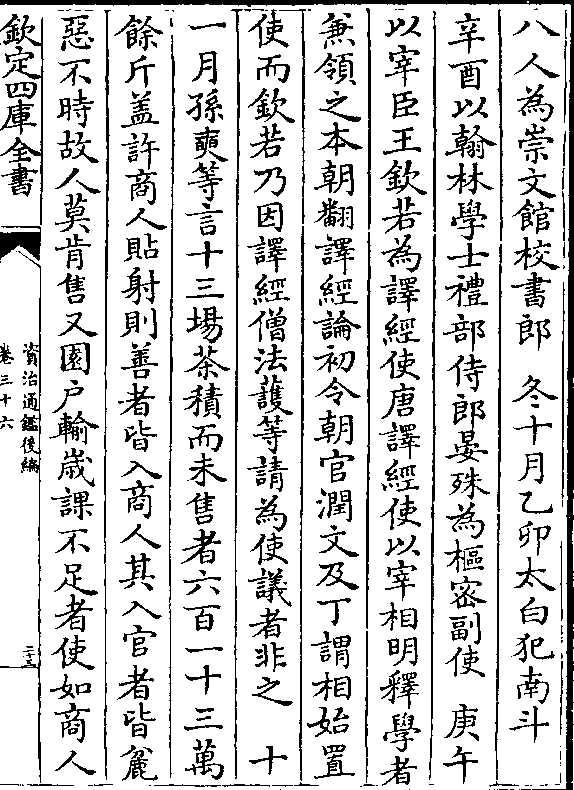 八人為崇文館校書郎　冬十月乙卯太白犯南斗
辛酉以翰林學士禮部侍郎晏殊為樞密副使　庚午
以宰臣王欽若為譯經使唐譯經使以宰相明釋學者
兼領之本朝翻譯經論初令朝官潤文及丁謂相始置
使而欽若乃因譯經僧法護等請為使議者非之　十
一月孫奭等言十三場茶積而未售者六百一十三萬
餘斤盖許商人貼射則善者皆入商人其入官者皆麄
惡不時故人莫肯售又園戸輸歲課不足者使如商人
欽定四庫全書
資治通鑑後編
卷三十六
二十三